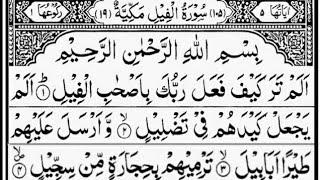 اٰیَاتُهَا ٥ (١٠٥) سُوْرَةُ الْفِیْلِ مَكِّیَّةٌ (١٩) رُكُوْعُهَا ١
بِسْمِ اللّٰهِ الرَّحْمٰنِ الرَّحِیْمِ
اَلَمْ تَرَ كَیْفَ فَعَلَ رَبُّكَ بِاَصْحٰبِ الْفِیْلِ ۝١ اَلَمْ
یَجْعَلْ كَیْدَهُمْ فِیْ تَضْلِیْلٍ ۝٢ وَّاَرْسَلَ عَلَیْهِمْ
طَیْرًا اَبَابِیْلَ ۝٣ تَرْمِیْهِمْ بِحِجَارَةٍ مِّنْ سِجِّیْلٍ ۝٤